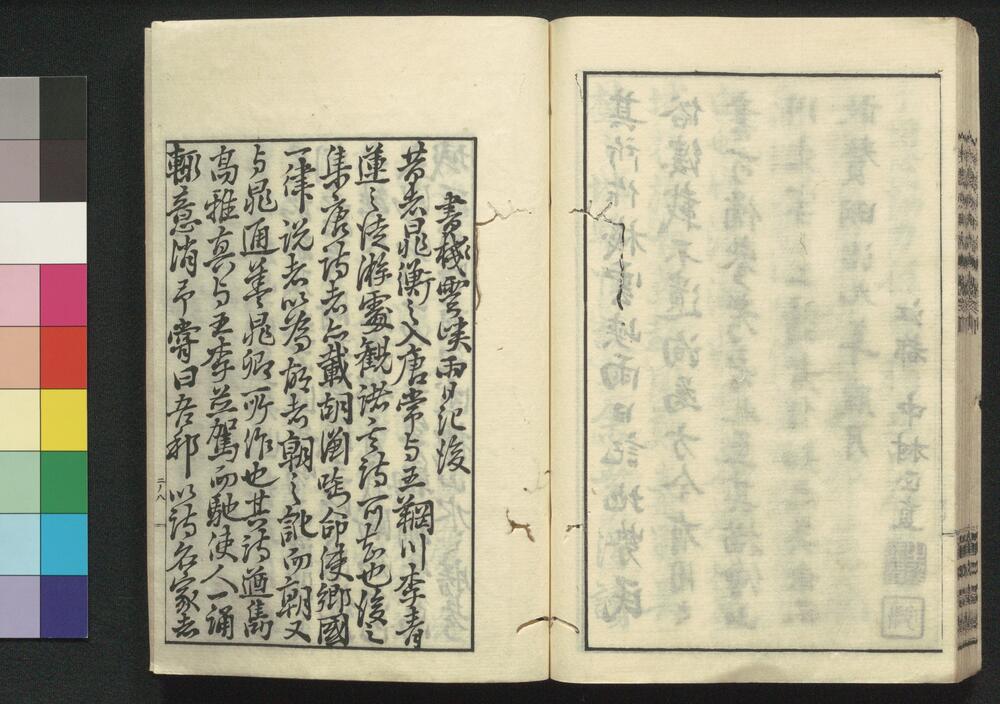 書棧雲峡雨日記後
昔者晁衡之入唐常与王輞川李青
蓮之徒游處観諸三詩可知也後之
集唐詩者亦載胡衡啣命使郷國
一律説者以為胡者朝之訛而朝又
与晁通蓋晁卿所作也其詩遒雋
高雅真与王李並駕而馳使人一誦
輙意消予嘗曰吾邦以詩名家者
二ノ八